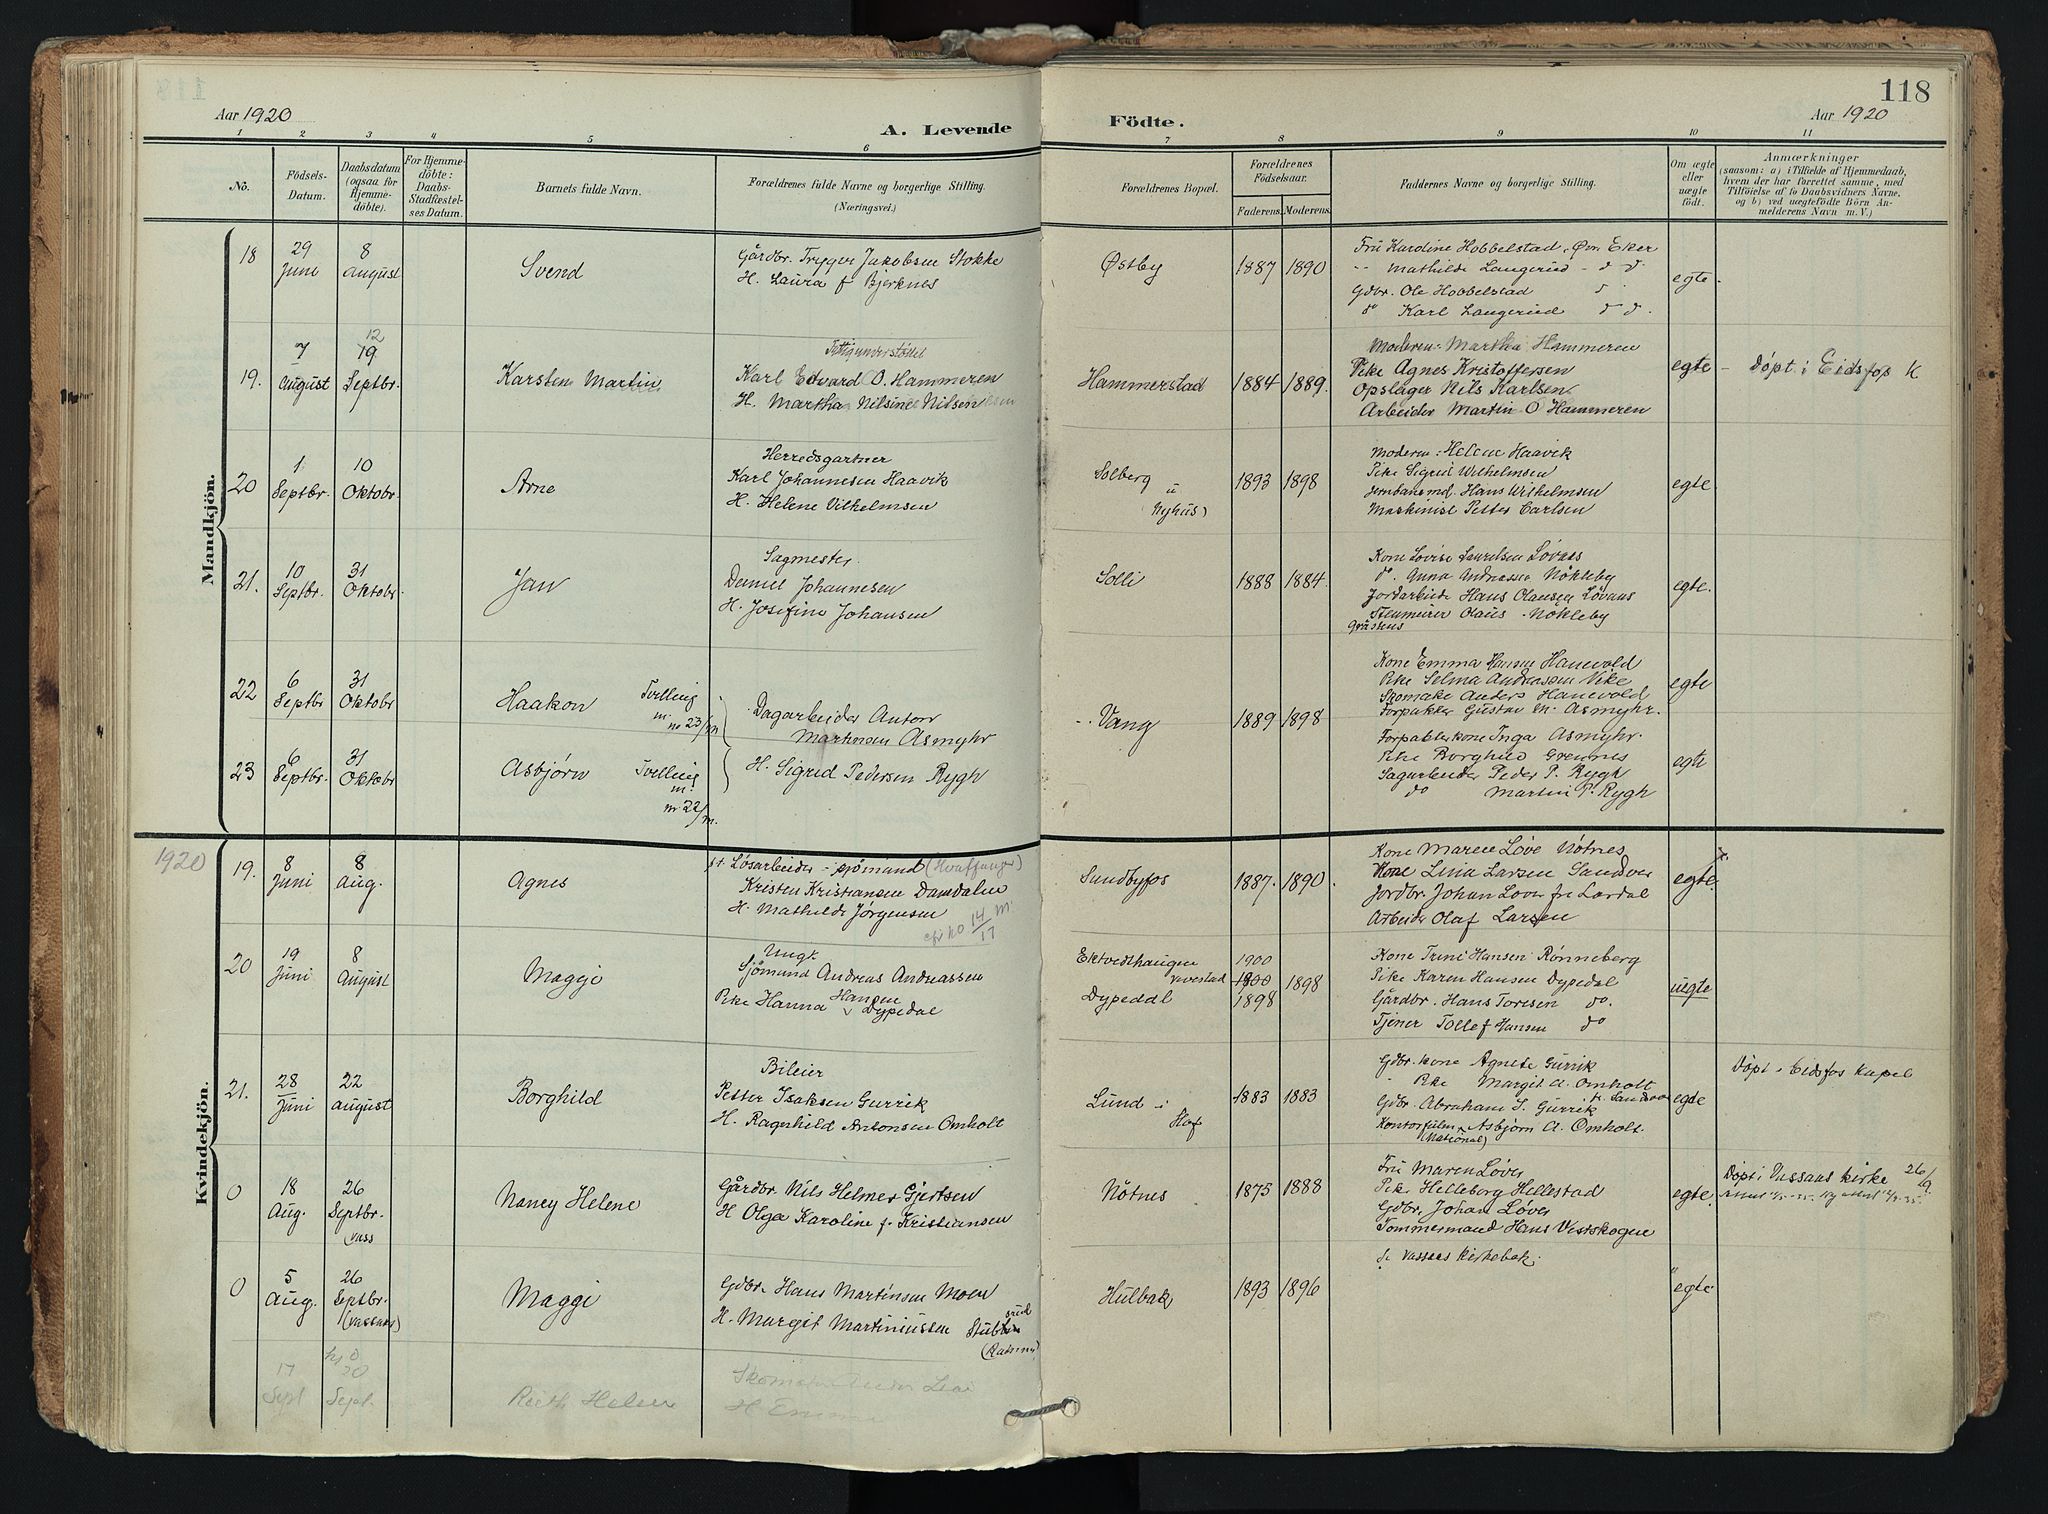 118
Aar 1920
A. Levende Födte.
Aar 1920
1 2 3 4 5 6 7 8 9 10 11
No.
Födsels-
Datum.
Daabsdatum
(ogsaa for
Hjemme-
döbte).
For Hjemme-
döbte:
Daabs-
Stadfæstel-
ses Datum.
Barnets fulde Navn.
Forældrenes fulde Navne og borgerlige Stilling.
(Næringsvei.)
Forældrenes Bopæl.
Forældrenes
Födselsaar.
Faderens. Moderens.
Faddernes Navne og borgerlige Stilling.
Om ægte
eller
uægte
födt.
Anmærkninger
(saasom: a) i Tilfælde af Hjemmedaab,
hvem der har forrettet samme, med
Tilföielse af to Daabsvidners Navne,
og b) ved uægtefödte Börn An-
melderens Navn m. V.)
Mandkjön.
18
29
Juni
8
August
Svend
Gårdbr. Trygve Jakobsen Stokke
H. Laura f Bjerknes
Østby
1887 1890
Fru Karoline Hobbelstad, Øvr. Eker
" Mathilde Langerud - d d.
Gdbr. Ole Hobbelstad d
d° Karl Langerud d d.
egte.
19.
7
August
12
19
Septbr.
Karsten Martin
Karl Edvard O. Hammeren
H. Martha Nilsine Nilsen
Hammerstad
1884 1889.
Moderen: Martha Hammeren
Pike Agnes Kristoffersen
Opslager Nils Karlsen
Arbeider Martin O Hammeren
egte
Døpt i Eidsfos K
20
1
Septbr.
10
Oktobr.
Arne
Herredsgartner
Karl Johannesen Haavik
H. Helene Vilhelmsen
Solberg
u
(Nyhus)
1893 1898
Moderen: Helene Haavik
Pike Sigrid Wilhelmsen
Jernbanemd. Hans Wilhelmsen
Maskinist Petter Carlsen
egte.
21.
10
Septbr.
31
Oktobr.
Jan
Sagmester
Daniel Johannesen
H. Josefine Johansen
Solli
1888 1884.
Kone Lovise Lauritsen Løvaas
d°. Anna Andreassen Nökleby
Jordarbeide Hans Olausen Løvaas
Stenmurer Olaus Nökleby
egte.
22
6
Septbr
31
Oktobr
Haakon
Tvilling
m.
no 23/m
Dagarbeider Anton
Martinsen Asmyhr
Vang
1889 1898
Kone Emma Hansen Hanevold
Pike Selma Andreassen Vike
Skomake Anders Hanevold
Forpakter Gustav M. Asmyhr.
egte
23
6
Septbr.
31
Oktobr
Asbjørn
Tvilling
m.
nr 22/m.
H. Sigrid Pedersen Rygh
Forpakterkone Inga Asmyhr.
Pike Borghild Grennes
Sagarbeider Peder P. Rygh
do Martin P. Rygh
egte
Kvindekjön.
1920
19.
8
Juni
8
Aug.
Agnes
Løsarbeider - sjömand (Hvalfanger)
Kristen Kristiansen Damdalen
H. Mathilde Jørgensen
cfr no 14/17 m.
Sundbyfos
1887. 1890
Kone Maren Løve Nötnes
Kone Lina Larsen
Jordbr. Johan Løve fr Lardal
Arbeider Olaf Larsen
egte.
20
19
Juni
8
August
Maggi
Ungk
Sjömand Andreas Andreassen
Pike Hanna Hansen Dypedal
Ektvedthaugen
Dypedal
1900
1898
1898
Kone Trine Hansen Rønneberg
Pike Karen Hansen Dypedal
Gårdbr. Hans Toresen do.
Tjener Tollef Hansen do
uegte
21.
28
Juni
22
August
Borghild
Bileier
Petter Isaksen Gurrik
H. Ragnhild Antonsen Omholt
Lund i
Hof
1883 1883
Gdbr. kone Agnete Gurrik
" Pike Margit A. Omholt
Gdbr. Abraham S. Gurrik
Kontorfulm. Asbjørn A. Omholt.
(National)
egde
Døpt i Eidsfos kapel
0
18
Aug.
26
Septbr.
(vass
Nancy Helene
Gårdbr. Nils Helmer Gjertsen
H Olga Karoline f. Kristiansen
Nötnes
1875 1888
Fru Maren Løve
Pike Helleborg Hellestad
Gdbr. Johan Løve
Tømmermand Hans Vestskogne
egte.
Döpt i Vassaas kirke 26/9
0
5
Aug.
26
Septbr.
(vassaas)
Maggi
Gdbr. Hans Martinsen Moen
H. Margit Martiniussen
Hulbak
1893 1896
Se Vassaas kirkebok.
egte.
17
Sept
20
Sept.
Ruth Helene
H Emma